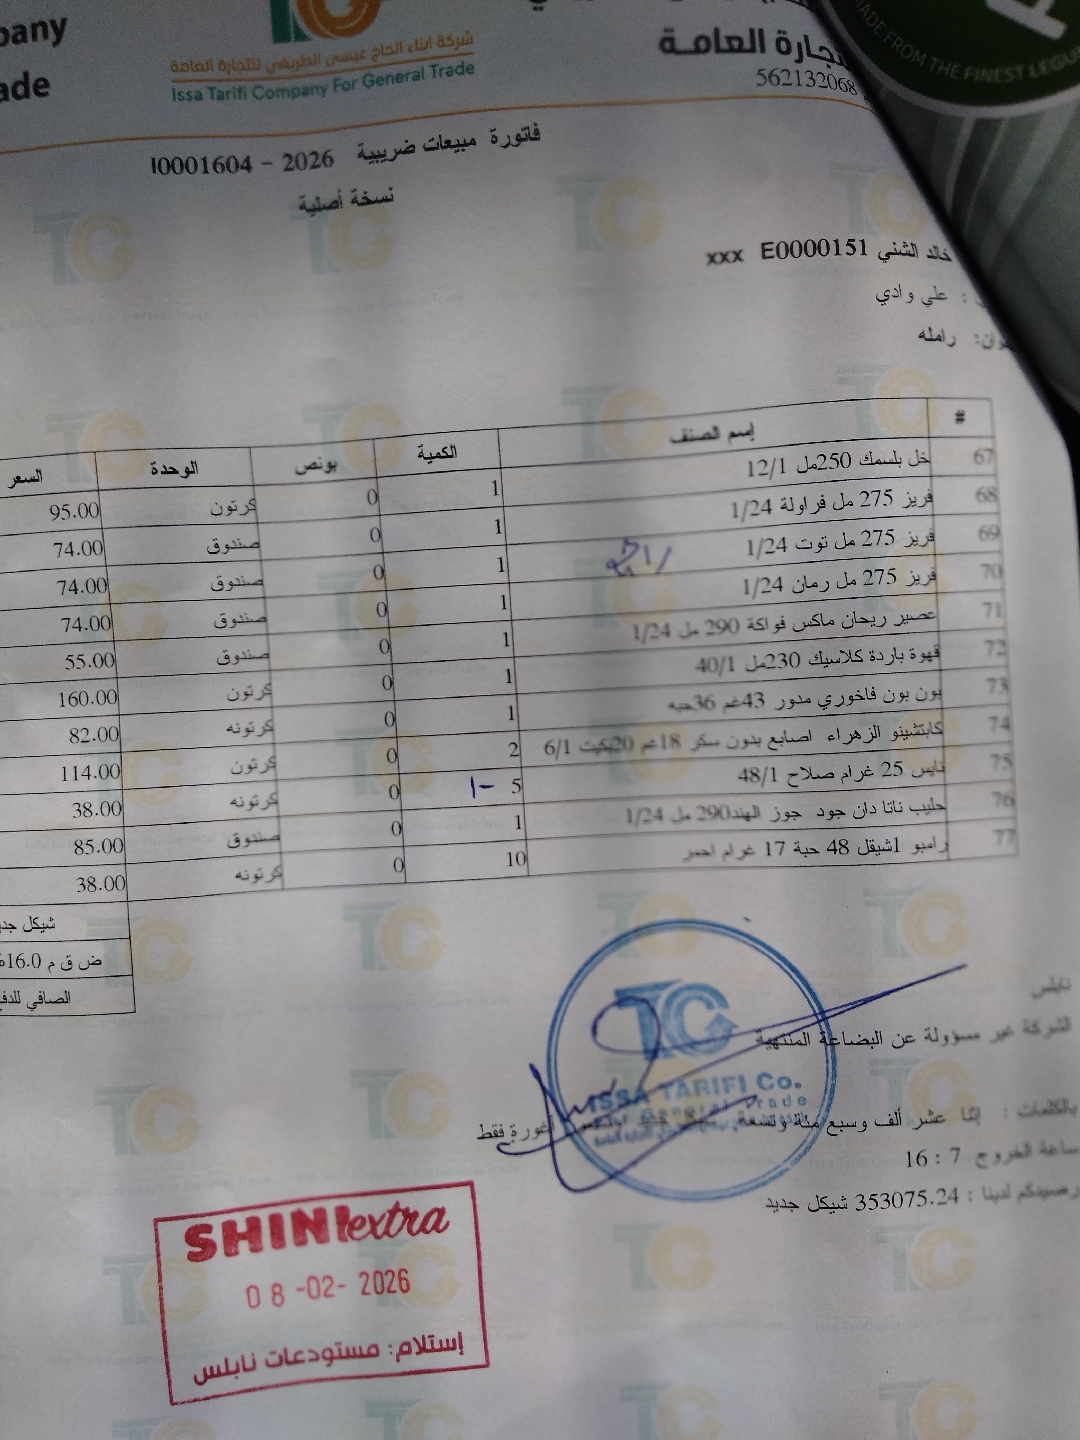 pany
ade
شركة ابناء الحاج عيسى الطريفي للتجارة العامة
Issa Tarifi Company For General Trade
تجارة العامة
562132068
MADE FROM THE FINEST LEGU
فاتورة مبيعات ضريبية 2026 - I0001604
نسخة أصلية
خالد الشني E0000151 xxx
: علي وادي
وان: رامله
# إسم الصنف الكمية بونص الوحدة السعر
67 خل بلسمك 250مل 12/1 1 0 كرتون 95.00
68 فريز 275 مل فراولة 1/24 1 0 صندوق 74.00
69 فريز 275 مل توت 1/24 1 0 صندوق 74.00
70 فريز 275 مل رمان 1/24 1 0 صندوق 74.00
71 عصير ريحان ماكس فواكة 290 مل 1/24 1 0 صندوق 55.00
72 قهوة باردة كلاسيك 230مل 40/1 1 0 كرتون 160.00
73 بون بون فاخوري مدور 43غم 36حبه 1 0 كرتونه 82.00
74 كابتشينو الزهراء اصابع بدون سكر 18غم 20بكيت 6/1 2 0 كرتون 114.00
75 نايس 25 غرام صلاح 48/1 5 -1 0 كرتونه 38.00
76 حليب ناتا دان جود جوز الهند290 مل 1/24 1 0 صندوق 85.00
77 رامبو 1شيقل 48 حبة 17 غرام احمر 10 0 كرتونه 38.00
شيكل جدي
ض ق م 16.0%
الصافي للدفع
نابلس
الشركة غير مسؤولة عن البضاعة المنتهية
TC
ISSA TARIFI Co.
For General Trade
بالكلمات : إثنا عشر ألف وسبع مئة وتسعة أغورة فقط
ساعة الخروج 7 : 16
رصيدكم لدينا : 353075.24 شيكل جديد
SHINI extra
08-02-2026
إستلام: مستودعات نابلس